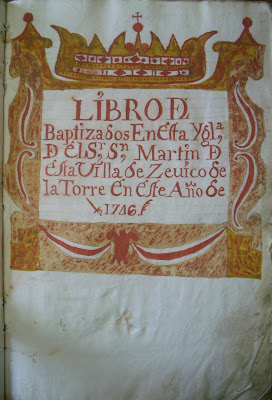 LIBRO D
Baptizados En Esta Ygla
D el Sr. Sn. Martin D
esta Villa de Zevico de
la Torre En este Año de
1746